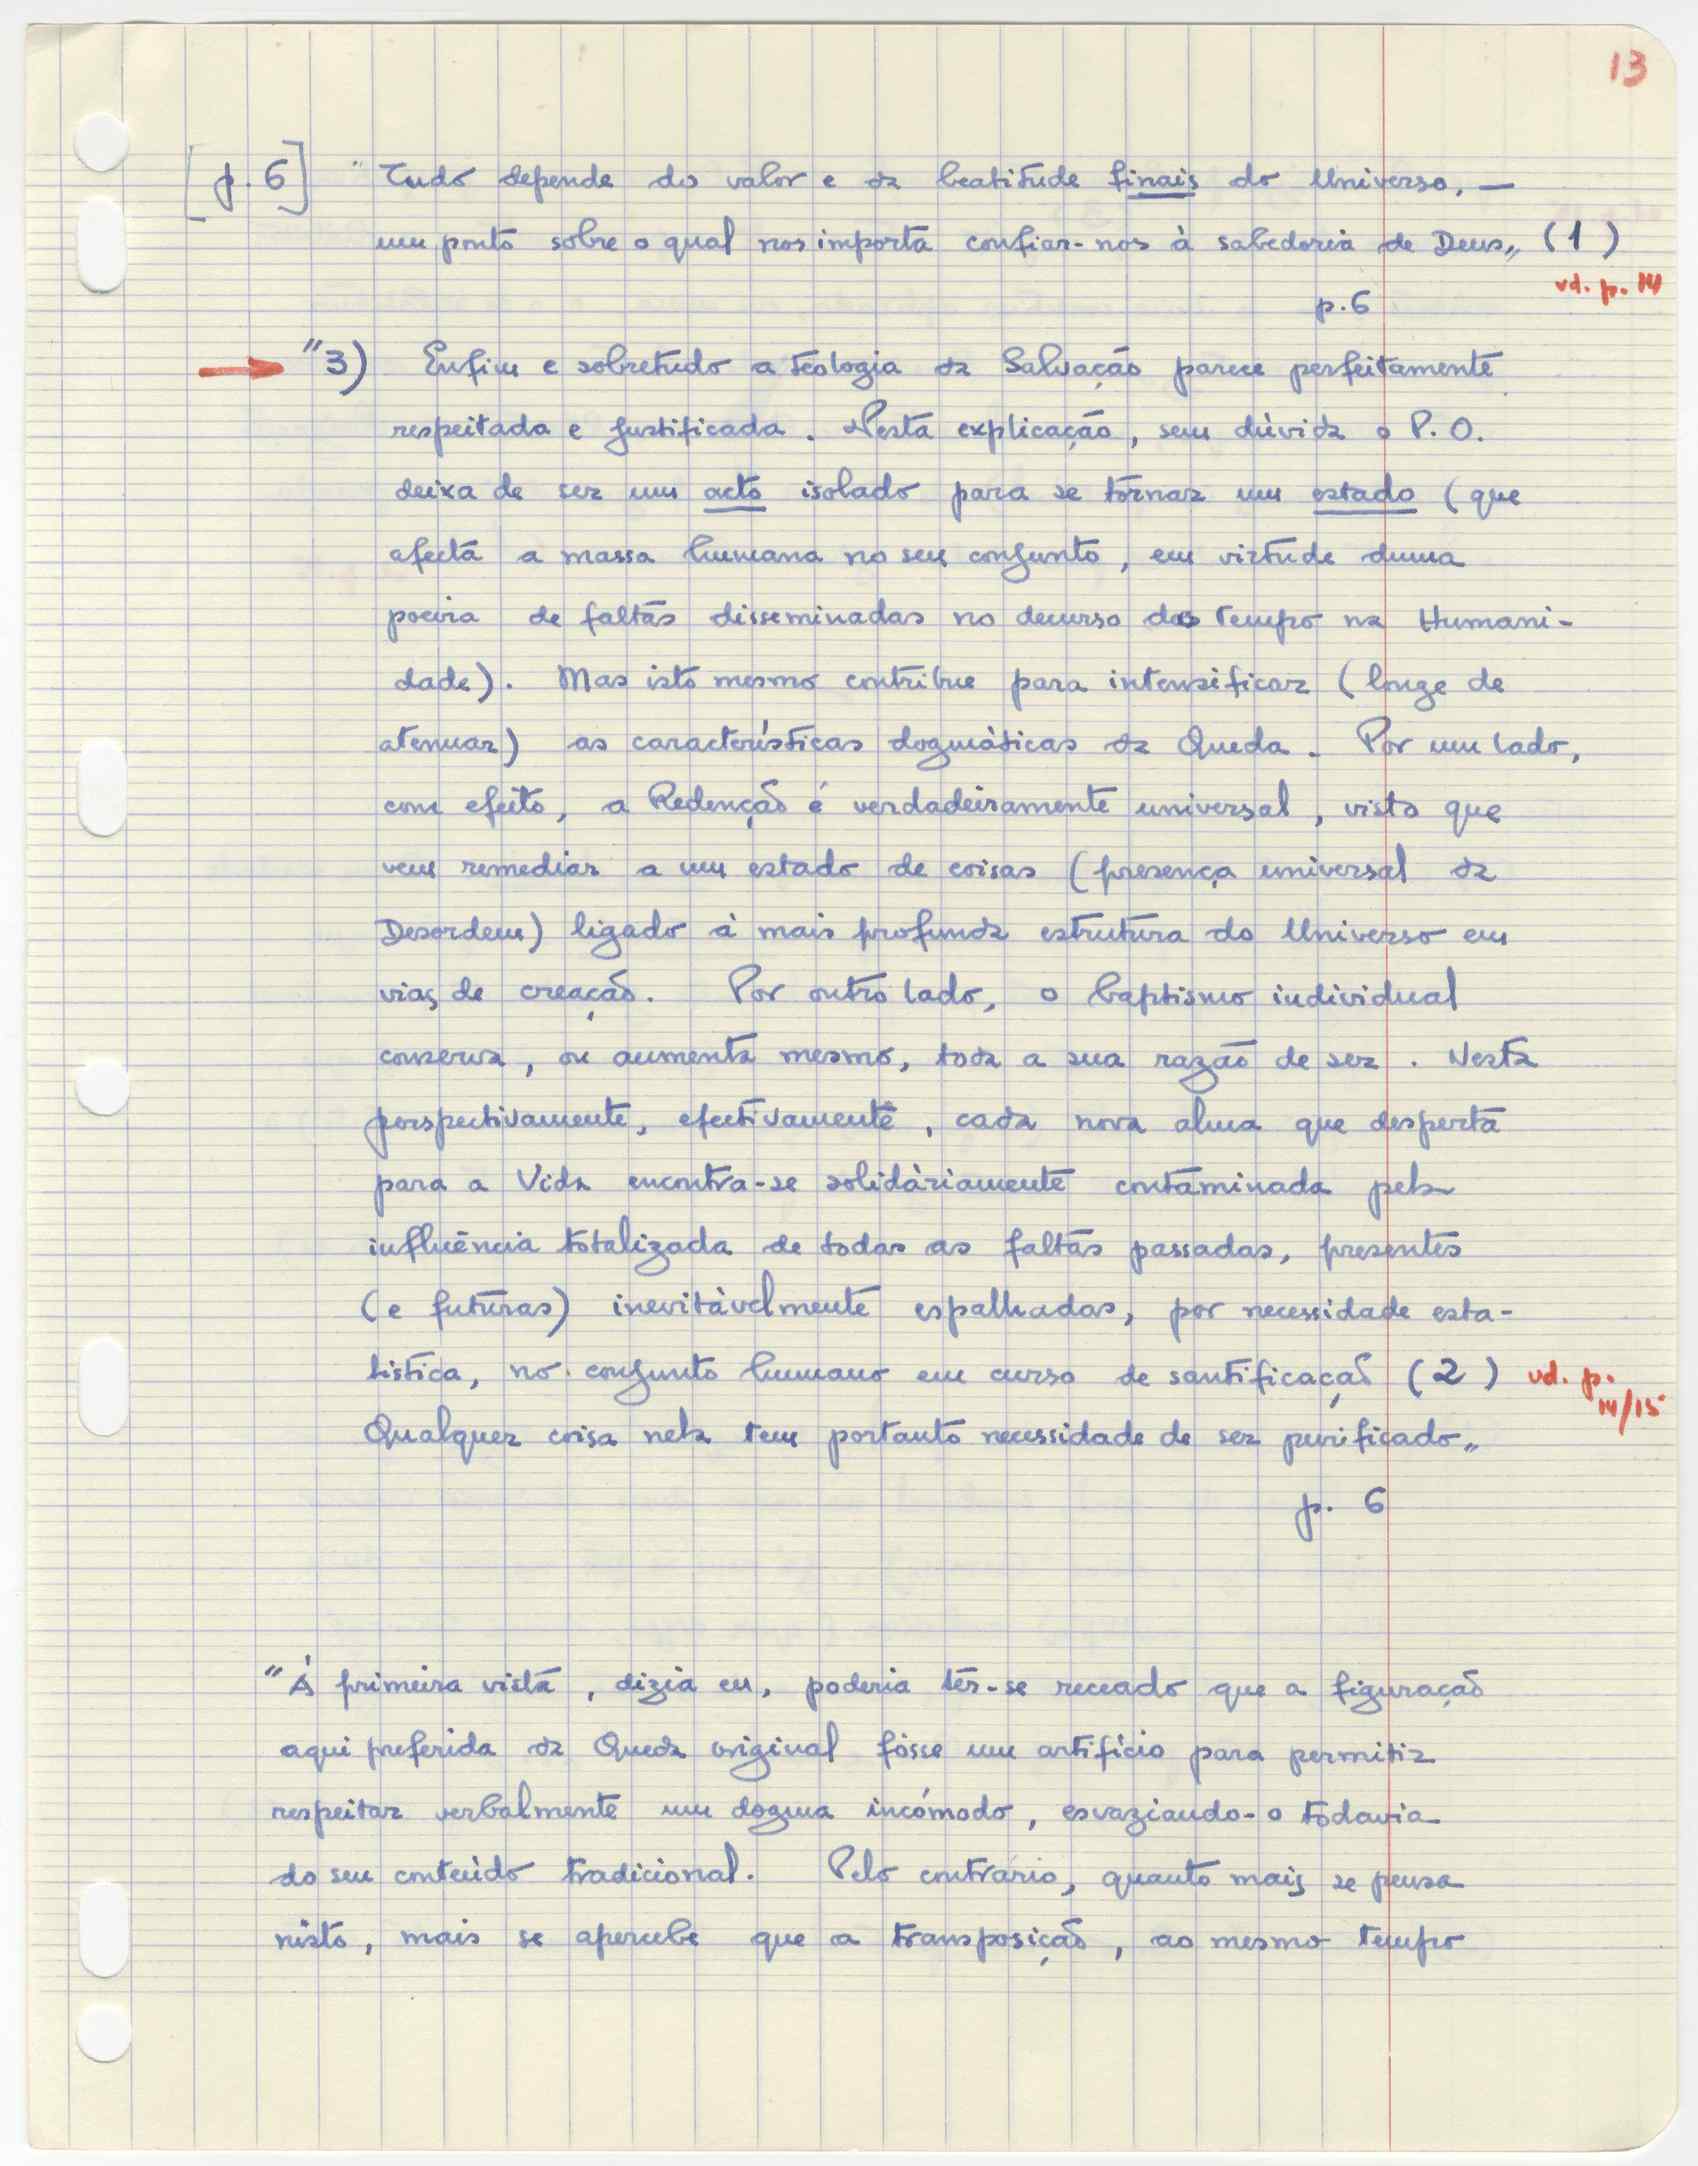 13
[p. 6] "Tudo depende do valor e da beatitude finais do Universo, —
um ponto sobre o qual nos importa confiar-nos à sabedoria de Deus„ (1)
vd. p. 14
p. 6
"3) Enfim e sobretudo a teologia da Salvação parece perfeitamente
respeitada e justificada. Nesta explicação, sem dùvida o P. O.
deixa de ser um acto isolado para se tornar um estado (que
afecta a massa humana no seu conjunto, em virtude duma
poeira de faltas disseminadas no decurso do tempo na Humani-
dade). Mas isto mesmo contribue para intensificar (longe de
atenuar) as características dogmáticas da Queda. Por um lado,
com efeito, a Redenção é verdadeiramente universal, visto que
vem remediar a um estado de coisas (presença universal da
Desordem) ligado à mais profunda estrutura do Universo em
vias de creação. Por outro lado, o baptismo individual
conserva, ou aumenta mesmo, toda a sua razão de ser. Nesta
perspectivamente, efectivamente, cada nova alma que desperta
para a Vida encontra-se solidàriamente contaminada pela
influência totalizada de todas as faltas passadas, presentes
(e futuras) inevitàvelmente espalhadas, por necessidade esta-
tistica, no conjunto humano em curso de santificação (2) vd. p.
14/15
Qualquer coisa nela tem portanto necessidade de ser purificado„
p. 6
"À primeira vista, dizia eu, poderia têr-se receado que a figuração
aqui preferida da Queda original fôsse um artifício para permitir
respeitar verbalmente um dogma incómodo, esvaziando-o todavia
do seu conteúdo tradicional. Pelo contrário, quanto mais se pensa
nisto, mais se apercebe que a transposição, ao mesmo tempo